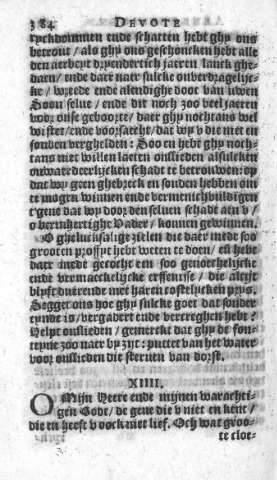 384. DEVOTE
ryckdommen ende schatten hebt ghy ons
betrout / alo ghy ons geschoncken hebt alle
den aerbeyt dryendertich jaeren lanck ghe-
daen / ende daer naer sulcke onverdragelije-
ke / wreede ende alendighe doot van uwen
Soon selue / ende dit noch zoo veel jaeren
voor ons geboorte / daer ghy nochtans wel
wistet / ende voorsaecht / dat wy v die met en
sonden verghelden: Soo en hebt ghy noch-
tans niet willen laeten onslieden alsulcken
onwaerdeerlijcken schadt te betrouwen: op
dat wy geen ghebreck en souden hebben om
te mogen winnen ende vermenichvuldigen
t'gene dat wy door den seluen schadt aen v /
o bermhertighe Vader / konnen gewinnen.
O ghelucksalige zielen die daer mede soo
grooten proffyt hebt weten te doen / en hebt
daer mede gecocht een soo genoechelijcke
ende vermaeckelijcke erffenisse / die altijt
blyft duerende met haren costelijcken prys.
Segget ons hoe ghy sulcke goet dat sonder
eynde is / vergadert ende vercreghen hebt?
Helpt onslieden / gemerckt dat ghy de fon-
teyne zoo naer by zyt: puttet van het water
voor onslieden die sterven van dorst.
XIIII.
O Mijn Heere ende mijnen warachti-
gen Godt / de gene die v niet en kent /
die en heeft v oock niet lief. Och wat groo-
te clot-